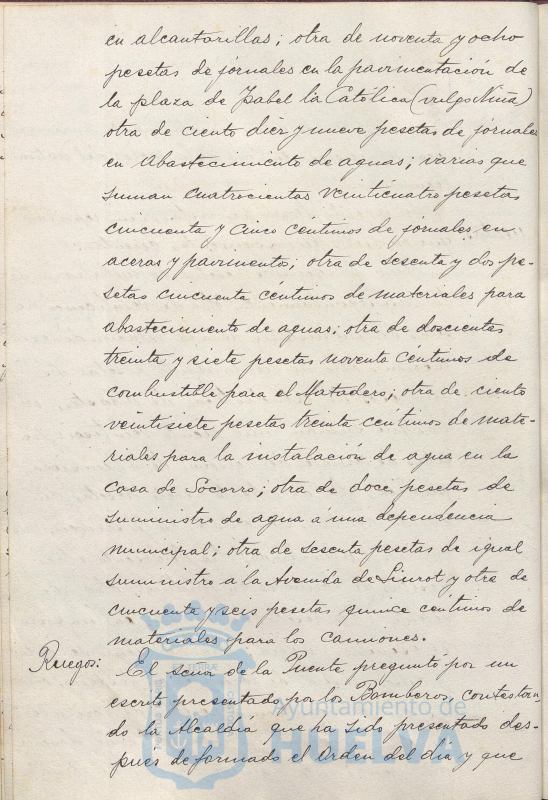 en alcantarillas; otra de noventa y ocho
pesetas de jornales en la pavimentación de
la plaza de Isabel la Católica (vulgo Niña)
otra de ciento diez y nueve pesetas de jornales
en Abastecimiento de aguas; varias que
suman cuatrocientas veinticuatro pesetas
cincuenta y cinco céntimos de jornales en
aceras y pavimentos; otra de sesenta y dos pe-
setas cincuenta céntimos de materiales para
abastecimiento de aguas; otra de doscientas
treinta y siete pesetas noventa céntimos de
combustible para el Matadero; otra de ciento
veintisiete pesetas treinta céntimos de mate-
riales para la instalación de agua en la
Casa de Socorro; otra de doce pesetas de
suministro de agua á una dependencia
municipal; otra de sesenta pesetas de igual
suministro á la Avenida de Siurot y otra de
cincuenta y seis pesetas quince céntimos de
materiales para los camiones.
Ruegos: El señor de la Puente preguntó por un
escrito presentado por los Bomberos, contestan-
do la Alcaldía que ha sido presentado des-
pues de formado el Orden del día y que
Ayuntamiento de
HUELVA